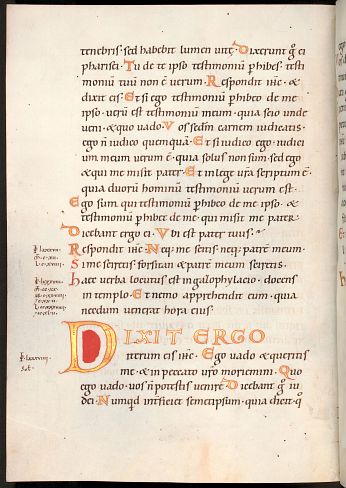 tenebris · sed habebit lumen vitę · Dixerunt g̃ ei
pharisei · Tu de te ipso testimoniũ phibes · testi
moniũ tuũ non ẽ verum · Respondit ihc · &
dixit eis · Et si ego testimoniũ phibeo de me
ipso · verũ est testimoniũ meum · quia scio unde
veni · & quo vado · Vos sedm̃ carnem iudicatis ·
ego ñ iudico quemquã · Et si iudico ego · iudici
um meum verum ẽ · quia solus non sum · sed ego
& qui me misit pater · Et in lege vr̃a scriptum ẽ ·
quia duorũ hominũ testimonium verum est ·
Ego sum qui testimoniũ phibeo de me ipso · &
testimoniũ phibet de me · qui misit me pater ·
Dicebant ergo ei · Vbi est pater tuus ·
Respondit ihc · Neq; me scitis · neq; patrẽ meum ·
Si me sciretis · forsitan & patrẽ meum sciretis ·
Hęc verba locutus est in gazophylacio · docens
in templo · Et nemo apprehendit eum · quia
necdum venerat hora eius ·
DIXIT ERGO
iterum eis ihc · Ego vado & queritis
me · & in peccato vr̃o moriemini · Quo
ego vado · vos ñ potestis venire · Dicebant g̃ iu
dei · Numqd interficiet semetipsum · quia dicit · q̃